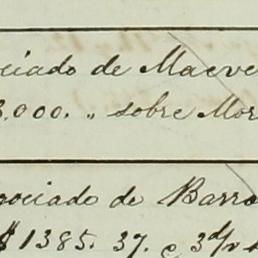 ociado de Maeve
3.000. " sobre Mor
gociado de Barro
$1385. 37. c 3d/v